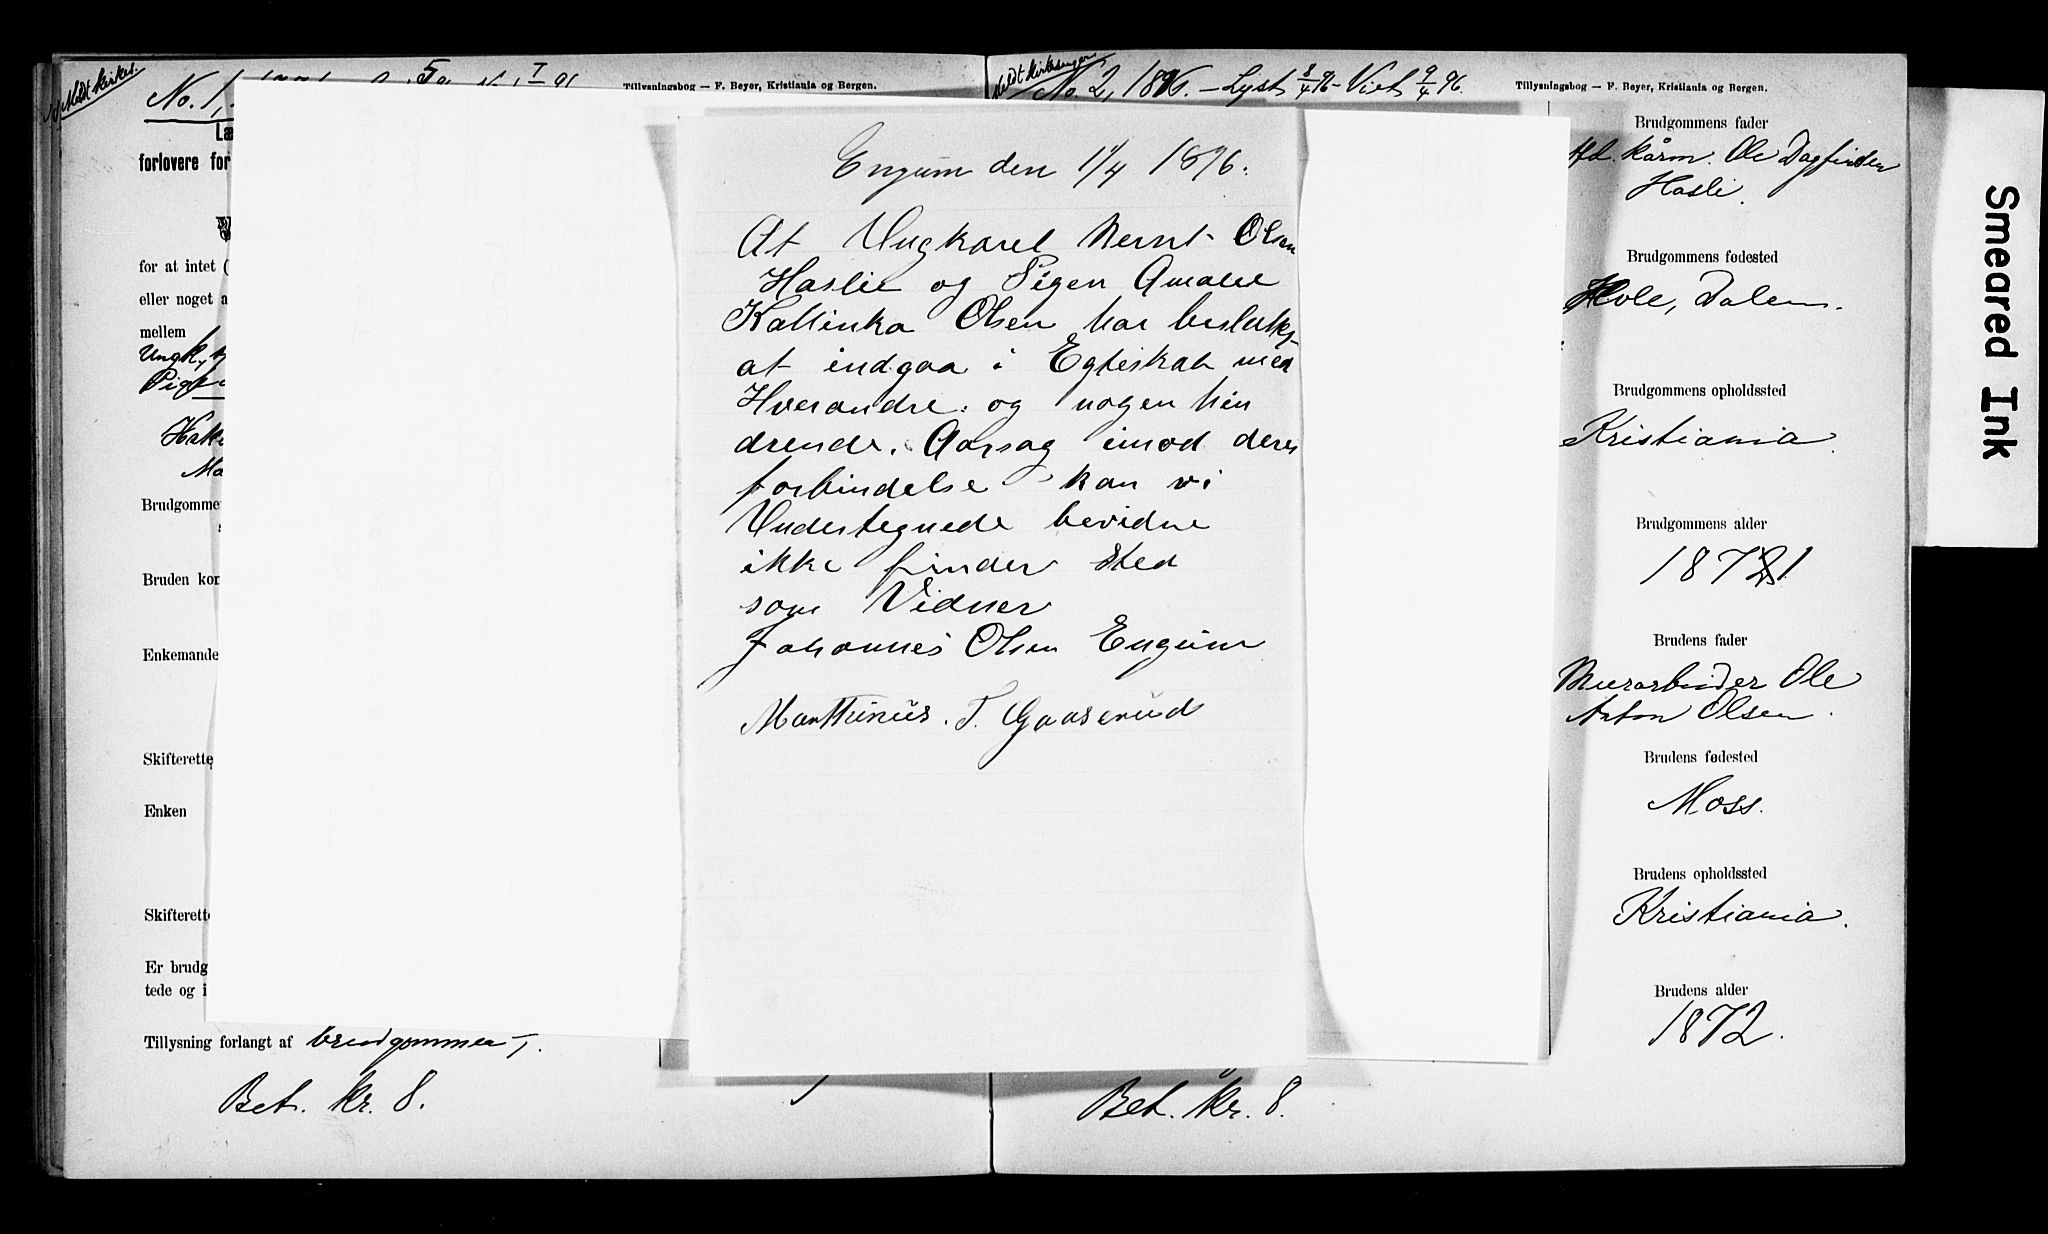 Meldt kirkes.
No. 1,
Tillysningsbog — F. Beyer, Kristiania og Bergen.
forlovere for
for at intet (
eller noget a
mellem
Ungk.,
Pige
Hak
Ma
Brudgomme
Bruden kor
Enkemande
Skifterette
Enken
Skifterett
Er brudg
tede og i
Tillysning forlangt af brudgommen
Bet. kr. 8.
Engum den 1/4 1896.
At Ungkarel Bernt Olsen
Haslie og Pigen Amalie
Kathinka Olsen har beslutte
at indgaa i Egteskab med
Hverandre. og nogen hin
drende. Aarsag imod deres
forbindelse kan vi
Undertegnede bevidne
ikke finder sted
som Vidner
Johannes Olsen Engum
Marthinius. T. Gaaserud
Meldt kirkesanger
No 2, 1896. — Lyst 8/4 96 — Viet 9/4 96.
Tillysningsbog — F. Beyer, Kristiania og Bergen.
Brudgommens fader
Ole Dagfindsen
Hasli.
Brudgommens fødested
Hole, Dalen.
Brudgommens opholdssted
Kristiania.
Brudgommens alder
1871.
Brudens fader
Murarbeider Ole
Anton Olsen.
Brudens fødested
Moss.
Brudens opholdssted
Kristiania.
Brudens alder
1872.
Bet. kr. 8.
Smeared Ink